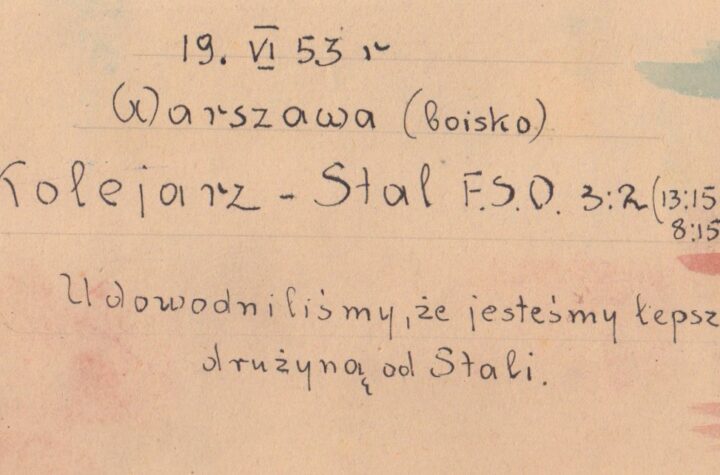 19. VI 53 r
Warszawa (boisko)
Kolejarz - Stal F.S.O. 3:2 (13:15
8:15
Udowodniliśmy, że jesteśmy łepsz
drużyną od Stali.